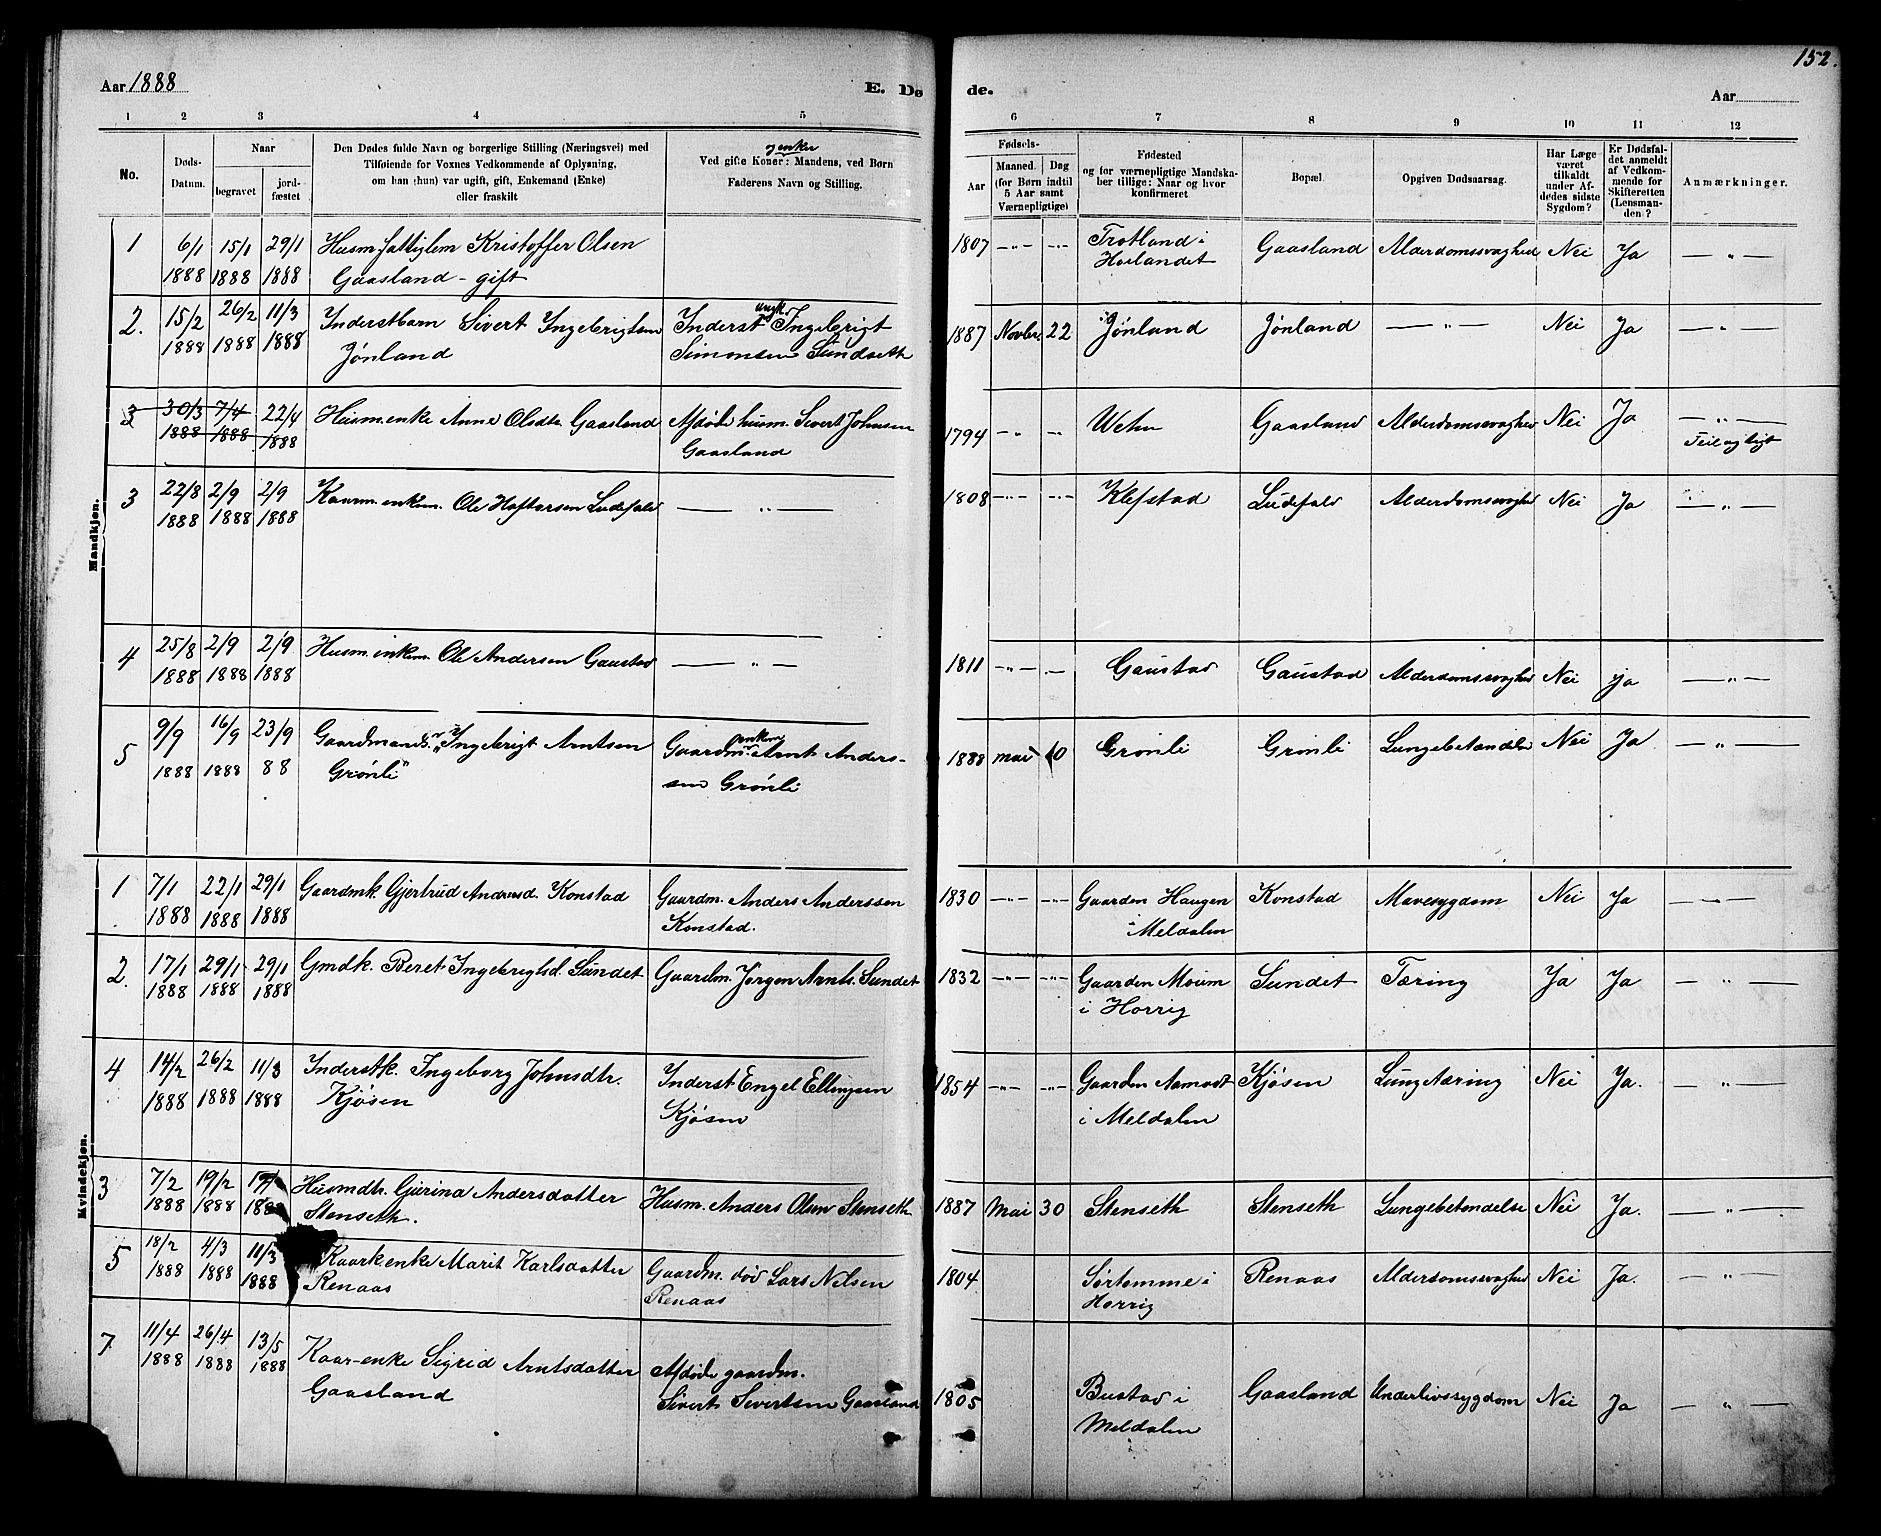 152.
Aar 1888
E. Dø de.
Aar
1 2 3 4 5 6 7 8 9 10 11 12
No.
Døds-Datum.
Naar
begravet
jord-fæstet
Den Dødes fulde Navn og borgerlige Stilling (Næringsvei) med
Tilføiende for Voxnes Vedkommende af Oplysning,
om han (hun) var ugift, gift, Enkemand (Enke)
eller fraskilt
Ved gifte Koner: Mandens, ved Børn
Faderens Navn og Stilling.
Fødsels-
Aar
Maaned. Døg
(for Børn indtil
5 Aar samt
Værnepligtige)
Fødested
og for værnepligtige Mandska-
ber tillige: Naar og hvor
konfirmeret
Bopæl.
Opgiven Dødsaarsag.
Har Læge
været
tilkaldt
under Af-
dødes sidste
Sygdom?
Er Dødsfal-
det anmeldt
af Vedkom-
mende for
Skifteretten
(Lensman-
den?
Anmærkninger.
Mandkjøn.
1 6/1 15/1 29/1 Husm. fattiglem Kristoffer Olsen 1807 —"— —"— Trotland i Gaasland Alderdomssvaghed Nei Ja — " —
1888 1888 1888 Gaasland - gift Hoilandet
2. 15/2 26/2 11/3 Inderstbarn Sivert Ingebrigtsen Inderst ungk. Ingebrigt 1887 Novber. 22 Jønland Jønland — " — Nei Ja — " —
1888 1888 1888 Jønland Simonsen Sundseth
3 30/3 7/4 22/4 Husm.enke Anne Olsdtr. Gaasland Afdøde husm. Sivert Johnsen 1794 —"— —"— Gaasland Alderdomssvaghed Nei Ja — " —
1888 1888 1888 Gaasland
3 22/8 2/9 2/9 Kaarm. enkem. Ole Haftorsen Ludefald — " — 1808 —"— —"— Klefstad Ludefald Alderdomssvaghed Nei Ja — " —
1888 1888 1888
4 25/8 2/9 2/9 Husm. enkem. Ole Andersen Gaustad — " — 1811 —"— — Gaustad Gaustad Alderdomssvaghed Nei ja — " —
1888 1888 1888
5 9/9 16/9 23/9 Gaardmands. "Ingebrigt Arntsen Gaardm. enkem. Arnt Anders- 1888 mai 10 Grønli Grønli Lungebetændelse Nei Ja — " —
1888 1888 88 Grønli" sen Grønli
Kvindekjøn.
1 7/1 22/1 29/1 Gaardmk. Gjertrud Andersd. Konstad Gaardm. Anders Anderssen 1830 —"— —"— Gaarden Haugen Konstad Mavesygdom Nei Ja — " —
1888 1888 1888 Konstad. i Meldalen
2. 17/1 29/1 29/1 Gmdk. Beret Ingebrigtsd. Sundet Gaardm. Jørgen Arnts. Sundet 1832 —"— —"— Gaarden Moum Sundet Tæring Ja Ja — " —
1888 1888 1888 i Horrig
4 14/2 26/2 11/3 Inderstk. Ingeborg Johnsdtr. Inderst Engel Ellingsen 1854 —"— —"— Gaarden Aamodt Kjøsen Lungtæring Nei Ja. — " —
1888 1888 1888 Kjøsen Kjøsen i Meldalen
3 7/2 19/2 Husmdtr. Gjerina Andersdatter Husm. Anders Olsen Stenseth 1887 Mai 30 Stenseth Stenseth Lungebetendelse Nei Ja. — " —
1888 1888 Stenseth.
5 18/2 4/3 11/3 Kaark.enke Marit Karlsdatter Gaardm. død Lars Nelsen 1804 Sørtømme i Renaas Alderdomssvaghed Nei Ja. — " —
1888 1888 1888 Renaas Renaas Horrig
7 11/4 26/4 13/5 Kaar-enke Sigrid Arntsdatter Afdøde gaardm. 1805 Bustad i Gaasland Underlivssygdom Nei Ja — " —
1888 1888 1888 Gaasland Sivert Sivertsen Gaasland Meldalen